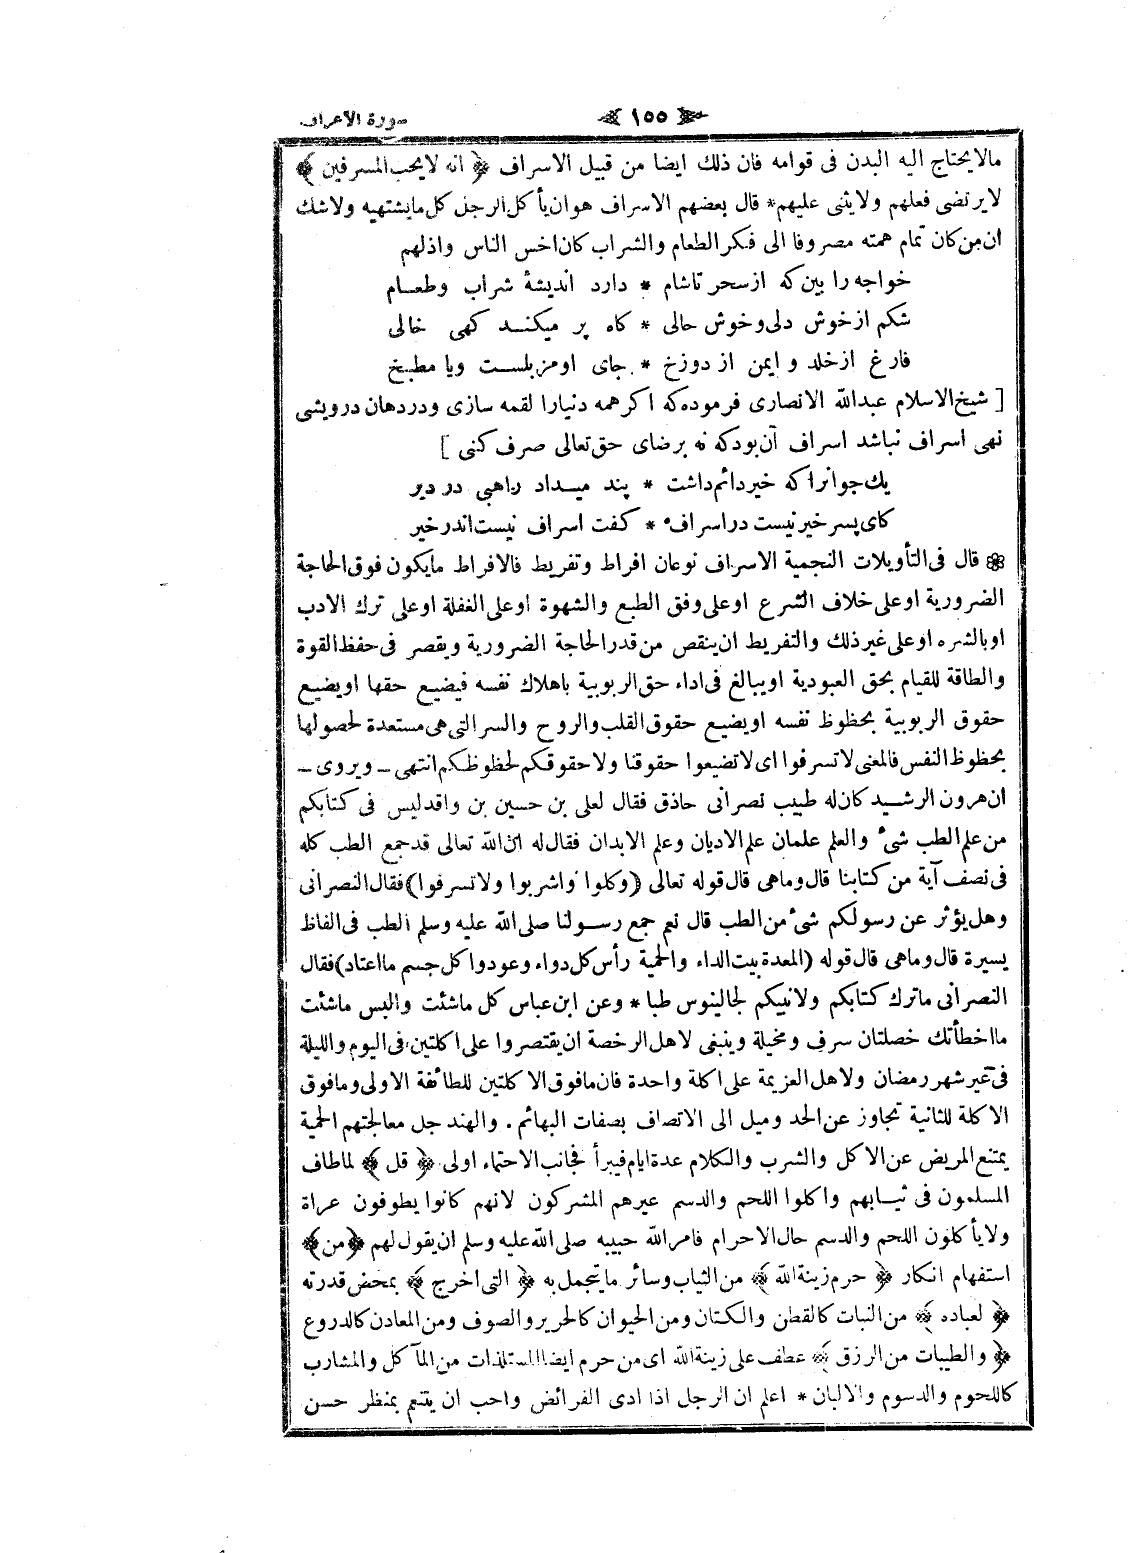 سورة الاعراف ﴿ ١٥٥ ﴾
مالايحتاج اليه البدن فى قوامه فان ذلك ايضا من قبيل الاسراف ﴿ انه لايحب المسرفين ﴾
لايرتضى فعلهم ولايثنى عليهم* قال بعضهم الاسراف هو ان يأكل الرجل كل مايشتهيه ولاشك
ان من كان تمام همته مصروفا الى فكر الطعام والشراب كان اخس الناس واذلهم
خواجه را بين كه ازسحر تاشام * دارد انديشۀ شراب وطعـام
شكم ازخوش دلى وخوش حالى * كاه پر ميكنـد كهى خالى
فارغ ازخلد و ايمن از دوزخ * جاى اومزبلست ويا مطبخ
[ شيخ الاسلام عبدالله الانصارى فرموده كه اكر همه دنيارا لقمه سازى ودردهان درويشى
نهى اسراف نباشد اسراف آن بود كه نه برضاى حق تعالى صرف كنى ]
يك جوانرا كه خير دائم داشت * پند ميـداد راهبى در دير
كاى پسر خير نيست دراسراف * كفت اسراف نيست اندرخير
❀ قال فى التأويلات النجمية الاسراف نوعان افراط وتفريط فالافراط مايكون فوق الحاجة
الضرورية اوعلى خلاف الشرع اوعلى وفق الطبع والشهوة اوعلى الغفلة اوعلى ترك الادب
اوبالشره اوعلى غير ذلك والتفريط ان ينقص من قدر الحاجة الضرورية ويقصر فى حفظ القوة
والطاقة للقيام بحق العبودية اويبالغ فى اداء حق الربوبية باهلاك نفسه فيضيع حقها اويضيع
حقوق الربوبية بحظوظ نفسه اويضيع حقوق القلب والروح والسر التى هى مستعدة لحصولها
بحظوظ النفس فالمعنى لاتسرفوا اى لاتضيعوا حقوقنا ولاحقوقكم لحظوظكم انتهى ـ ويروى ـ
ان هرون الرشـيد كان له طبيب نصرانى حاذق فقال لعلى بن حسين بن واقد ليس فى كتابكم
من علم الطب شىٔ والعلم علمان علم الاديان وعلم الابدان فقال له ان الله تعالى قدجمع الطب كله
فى نصف آية من كتابنا قال وماهى قال قوله تعالى (وكلوا واشربوا ولاتسرفوا) فقال النصرانى
وهل يؤثر عن رسولكم شىٔ من الطب قال نعم جمع رسـولنا صلى الله عليه وسلم الطب فى الفاظ
يسيرة قال وماهى قال قوله (المعدة بيت الداء والحمية رأس كل دواء وعودوا كل جسم مااعتاد) فقال
النصرانى ماترك كتابكم ولانبيكم لجالينوس طبا * وعن ابن عباس كل ماشئت والبس ماشئت
مااخطأتك خصلتان سرف ومخيلة وينبغى لاهل الرخصة ان يقتصروا على اكلتين فى اليوم والليلة
فى غير شهر رمضان ولاهل العزيمة على اكلة واحدة فان مافوق الاكلتين للطائفة الاولى ومافوق
الاكلة للثانية تجاوز عن الحد وميل الى الاتصاف بصفات البهائم . والهند جل معالجتهم الحمية
يمتنع المريض عن الاكل والشرب والكلام عدة ايام فيبرأ فجانب الاحتماء اولى ﴿ قل ﴾ لماطاف
المسلمون فى ثيـابهم واكلوا اللحم والدسم عيرهم المشركون لانهم كانوا يطوفون عراة
ولايأكلون اللحم والدسم حال الاحرام فامر الله حبيبه صلى الله عليه وسلم ان يقول لهم ﴿ من ﴾
استفهام انكار ﴿ حرم زينة الله ﴾ من الثياب وسائر مايتجمل به ﴿ التى اخرج ﴾ بمحض قدرته
﴿ لعباده ﴾ من النبات كالقطن والكتان ومن الحيوان كالحرير والصوف ومن المعادن كالدروع
﴿ والطيبات من الرزق ﴾ عطف على زينة الله اى من حرم ايضا المستلذات من المآكل والمشارب
كاللحوم والدسوم والالبان * اعلم ان الرجل اذا ادى الفرائض واحب ان يتنعم بمنظر حسن